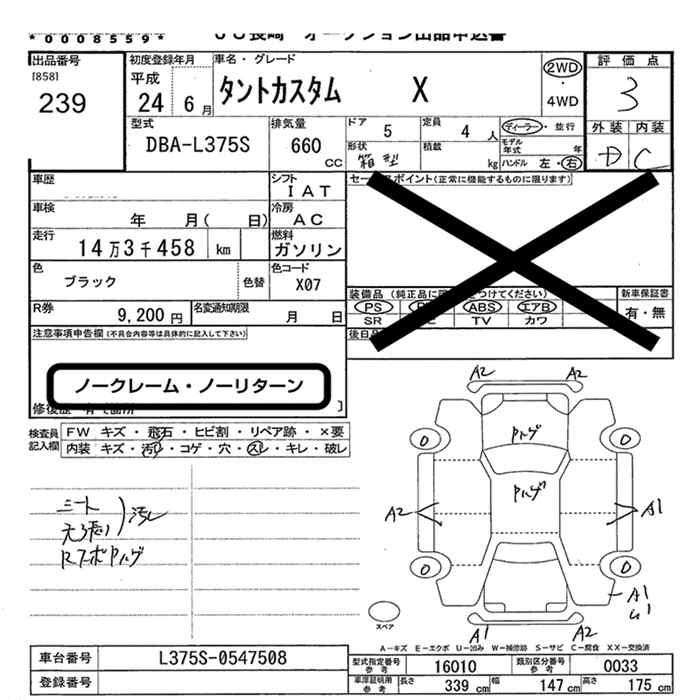 *0008559*
JU長崎 オークション出品申込書
出品番号 初度登録年月 車名・グレード 評価点
[858] 平成 タントカスタム X 2WD 3
239 24 6月 ・4WD
外装 内装
型式 排気量 ドア 5 定員 4人 ディーラー・並行 D C
DBA-L375S 660 CC 形状 箱型 積載 kg モデル年式 年
ハンドル 左・右
車歴 シフト IAT セールスポイント(正常に機能するものに限ります)
車検 年 月( 日) 冷房 AC
走行 14万3千458 km 燃料 ガソリン
色 ブラック 色替 色コード X07
装備品(純正品に つけてください) 新車保証書
PS ABS エアB 有・無
SR TV カワ
R券 9,200円 名変通知期限 月 日
後日
注意事項申告欄(不具合内容等は具体的に記入して下さい)
ノークレーム・ノーリターン
修復歴 有で箇所 〕
検査員記入欄 FW キズ・飛石・ヒビ割・リペア跡・×要
内装 キズ・汚れ・コゲ・穴・スレ・キレ・破レ
シート
天張 汚レ
RスポPハゲ
A2 A2
Pハゲ
0 0
Pハゲ
A2 A1
0 0
A1
U1
スペア
A1 A2
A-キズ E-エクボ U-凹み W-補修跡 S-サビ C-腐食 XX-交換済
車台番号 L375S-0547508 型式指定番号 参考 16010 類別区分番号 参考 0033
登録番号 車庫証明用 参考 長さ 339 cm 幅 147 cm 高さ 175 cm